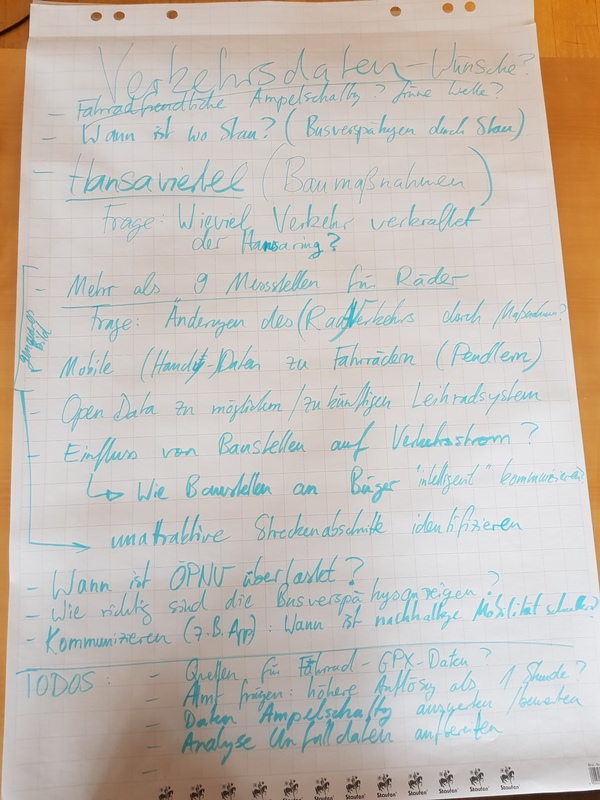 Verkehrsdaten-Wünsche?
- Fahrradfreundliche Ampelschaltg? Grüne Welle?
- Wann ist wo Stau? (Busverspätungen durch Stau)
- Hansaviertel (Baumaßnahmen)
Frage: Wieviel Verkehr verkraftet
der Hansaring?
- Mehr als 9 Messstellen für Räder
Frage: Änderungen des (Rad)Verkehrs durch Maßnahmen?
Mobile (Handy)-Daten zu Fahrrädern (Pendlern)
- Open Data zu möglichem/zukünftigen Leihradsystem
- Einfluss von Baustellen auf Verkehrsstrom?
Wie Baustellen an Bürger "intelligent" kommunizieren?
unattraktive Streckenabschnitte identifizieren
- Wann ist ÖPNV überlastet?
- Wie richtig sind die Busverspätungsanzeigen?
- Kommunizieren (z.B. App): Wann ist nachhaltige Mobilität schneller?
TODOS: - Quellen für Fahrrad-GPX-Daten?
- Amt fragen: höhere Auflösg als 1 Stunde?
- Daten Ampelschaltg auswerten/
- Analyse Unfalldaten aufbereiten
-
Staufen Staufen Staufen Staufen Staufen Staufen Staufen Staufen